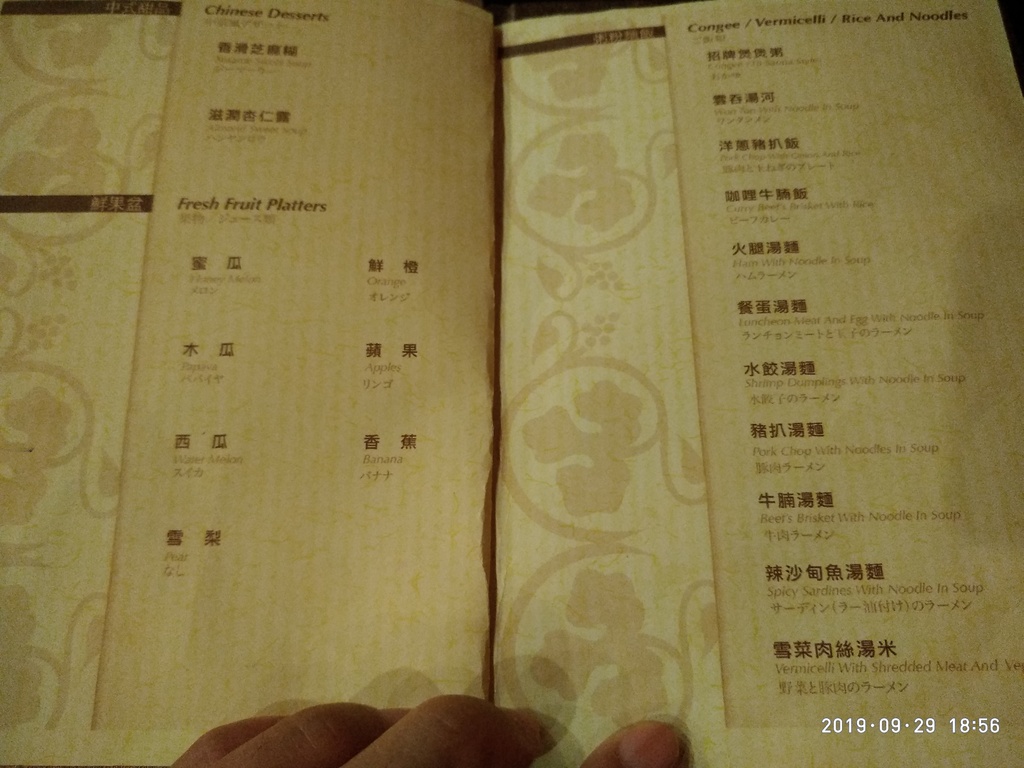 中式甜品
Chinese Desserts
香滑芝麻糊
Sesame Sweet Soup
滋潤杏仁露
Almond Sweet Soup
鮮果盆
Fresh Fruit Platters
果物 ジュース類
蜜瓜
Honey Melon
メロン
鮮橙
Orange
オレンジ
木瓜
Papaya
パパイヤ
蘋果
Apples
リンゴ
西瓜
Water Melon
スイカ
香蕉
Banana
バナナ
雪梨
Pear
なし
粥粉麵飯
Congee / Vermicelli / Rice And Noodles
ご飯類
招牌煲煲粥
Congee
おかゆ
雲吞湯河
Won Ton With Noodle In Soup
ワンタンメン
洋蔥豬扒飯
Pork Chop With Onion And Rice
豚肉と玉ねぎのプレート
咖哩牛腩飯
Curry Beef's Brisket With Rice
ビーフカレー
火腿湯麵
Ham With Noodle In Soup
ハムラーメン
餐蛋湯麵
Luncheon Meat And Egg With Noodle In Soup
ランチョンミートと玉子のラーメン
水餃湯麵
Shrimp Dumplings With Noodle In Soup
水餃子のラーメン
豬扒湯麵
Pork Chop With Noodles In Soup
豚肉ラーメン
牛腩湯麵
Beef's Brisket With Noodle In Soup
牛肉ラーメン
辣沙甸魚湯麵
Spicy Sardines With Noodle In Soup
サーディン(ラー油付け)のラーメン
雪菜肉絲湯米
Vermicelli With Shredded Meat And Ve
野菜と豚肉のラーメン
2019·09·29 18:56